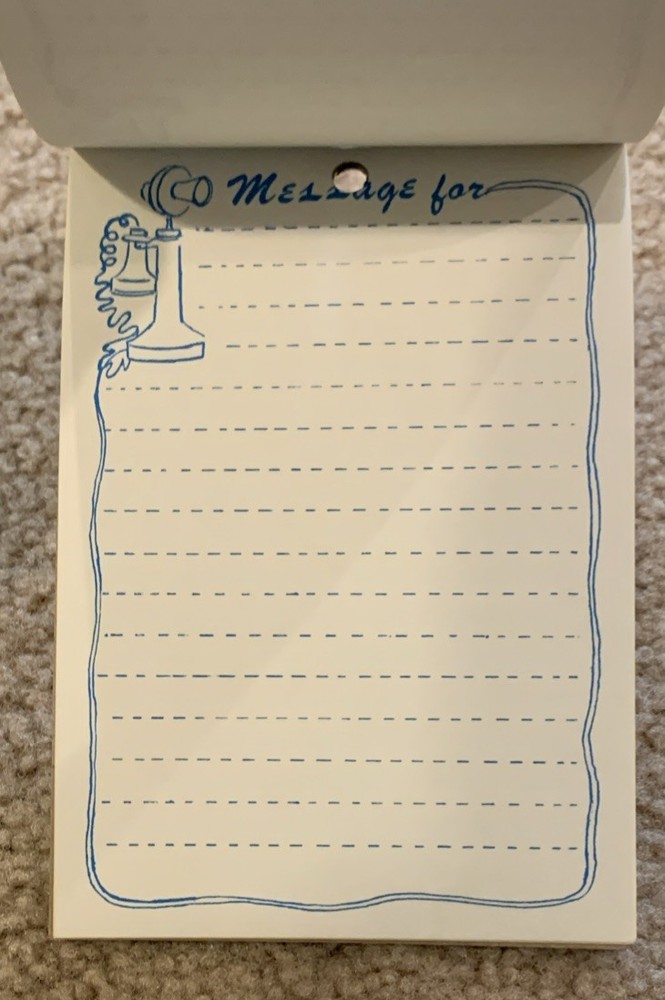 Message for